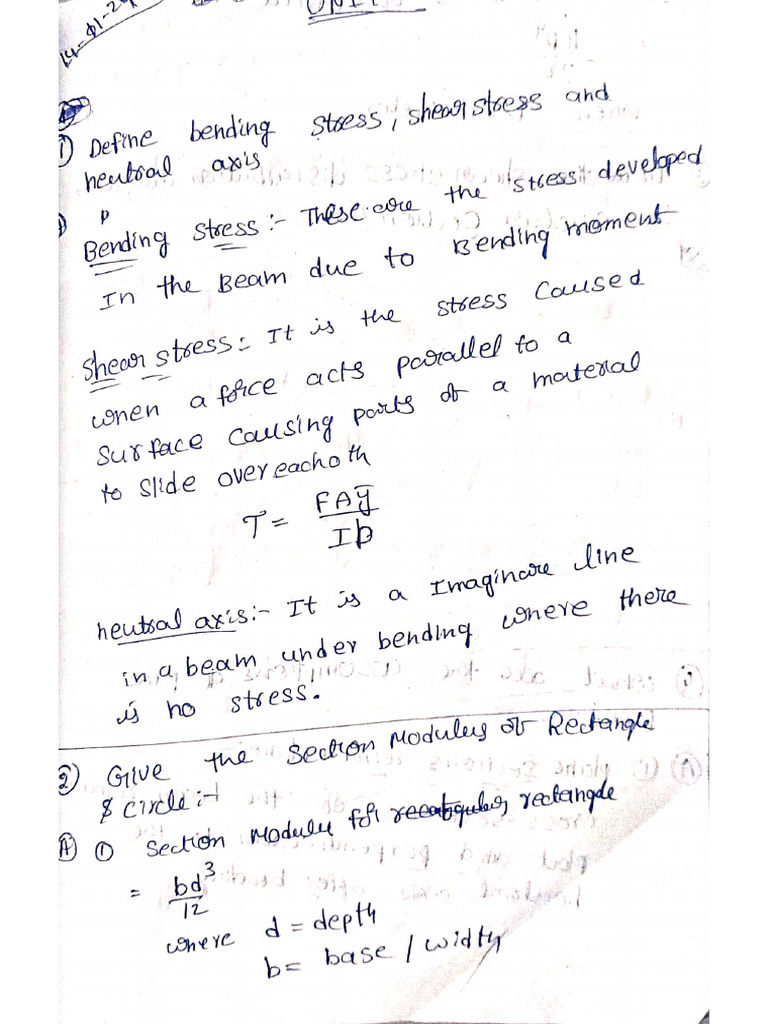 UNIT
1) Define bending stress, shear stress and
neutral axis
Bending stress :- These are the stress developed
In the Beam due to Bending moment
Shear stress :- It is the stress caused
when a force acts parallel to a
surface causing parts of a material
to slide over each oth
τ = FAȳ
Ib
neutral axis :- It is a Imaginare line
in a beam under bending where there
is no stress.
2) Give the section Modulus of Rectangle
& circle :-
A) ① Section Modulu for rectangle
= bd³
12
where d = depth
b = base / width